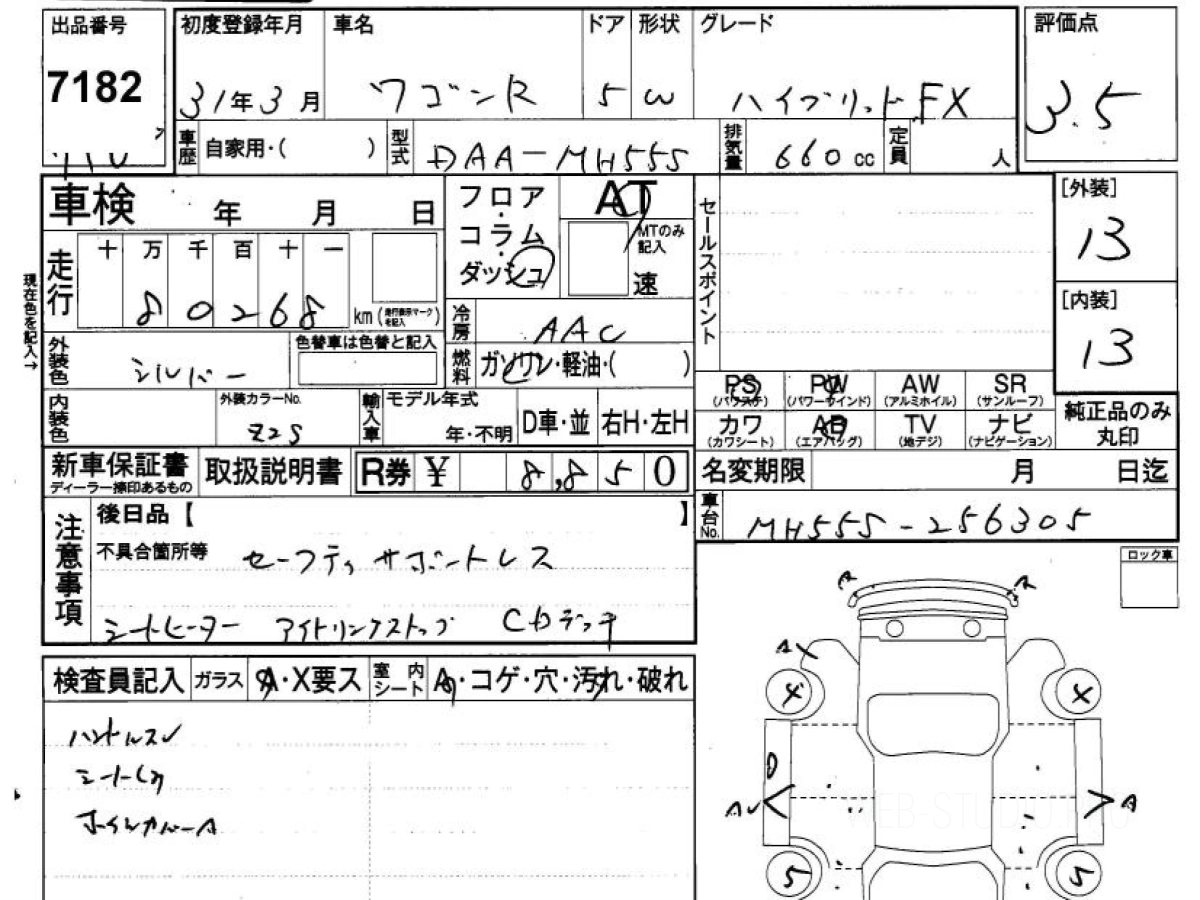 出品番号 初度登録年月 車名 ドア 形状 グレード 評価点
7182 31年3月 ワゴンR 5 W ハイブリッドFX 3.5
車歴 自家用・( ) 型式 DAA-MH55S 排気量 660cc 定員 人
車検 年 月 日 フロア・コラム・ダッシュ AT セールスポイント [外装]
13
走行 十 万 千 百 十 一 MTのみ記入 速
80268 km (走行表示マークを記入) [内装]
13
現在色を記入→
冷房 AAC
外装色 シルバー 色替車は色替と記入 燃料 ガソリン・軽油・( )
PS (パワステ) PW (パワーウインド) AW (アルミホイル) SR (サンルーフ)
内装色 外装カラーNo. Z2S 輸入車 モデル年式 年・不明 D車・並 右H・左H
カワ (カワシート) AB (エアバッグ) TV (地デジ) ナビ (ナビゲーション) 純正品のみ丸印
新車保証書 ディーラー捺印あるもの 取扱説明書 R券 ¥ 8,850 名変期限 月 日迄
注意事項 後日品【 】 車台No. MH55S-256305
不具合箇所等 セーフティサポートレス
シートヒーター アイドリングストップ CDデッキ
ロック車
検査員記入 ガラス A・X要ス 室内シート A・コゲ・穴・汚れ・破れ
ハンドルスレ
ホイルカバーA
A
4 4
A A
5 5
WEB-STUDIO.PRO